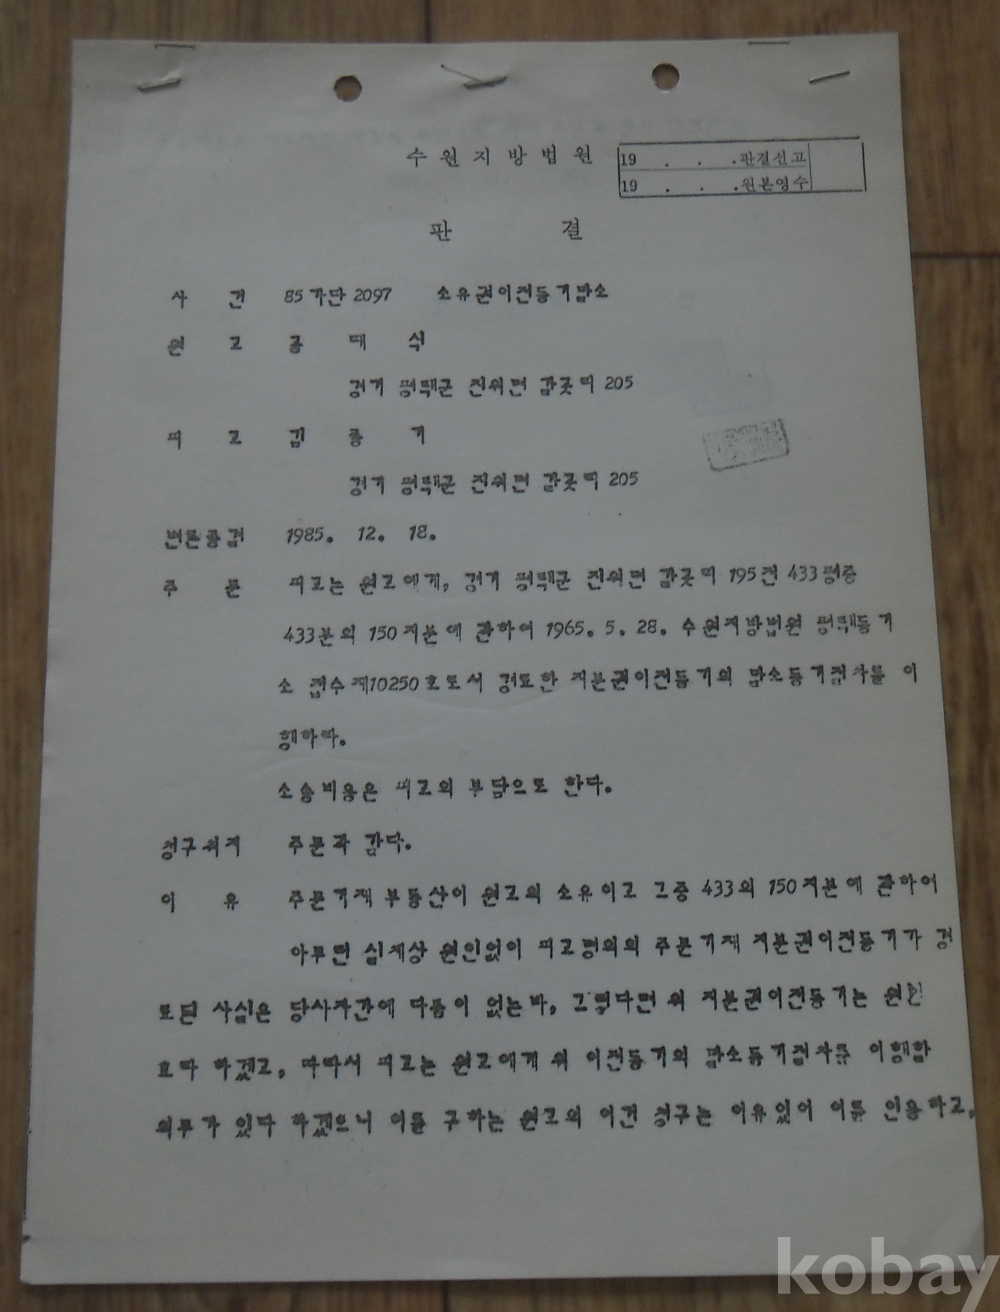 수원지방법원
19 . . .판결선고
19 . . .원본영수
판 결
사 건 85가단2097 소유권이전등기말소
원 고 공 대 식
경기 평택군 진위면 갈곶리 205
피 고 김 종 기
경기 평택군 진위면 갈곶리 205
변론종결 1985. 12. 18.
주 문 피고는 원고에게, 경기 평택군 진위면 갈곶리 195전 433평중
433분의 150지분에 관하여 1965. 5. 28. 수원지방법원 평택등기
소 접수제10250호로서 경료한 지분권이전등기의 말소등기절차를 이
행하라.
소송비용은 피고의 부담으로 한다.
청구취지 주문과 같다.
이 유 주문기재 부동산이 원고의 소유이고 그중 433의 150지분에 관하여
아무런 실체상 원인없이 피고명의의 주문기재 지분권이전등기가 경
료된 사실은 당사자간에 다툼이 없는바, 그렇다면 위 지분권이전등기는 원인
무효라 하겠고, 따라서 피고는 원고에게 위 이전등기의 말소등기절차를 이행할
의무가 있다 하겠으니 이를 구하는 원고의 이건 청구는 이유있어 이를 인용하고,
kobay